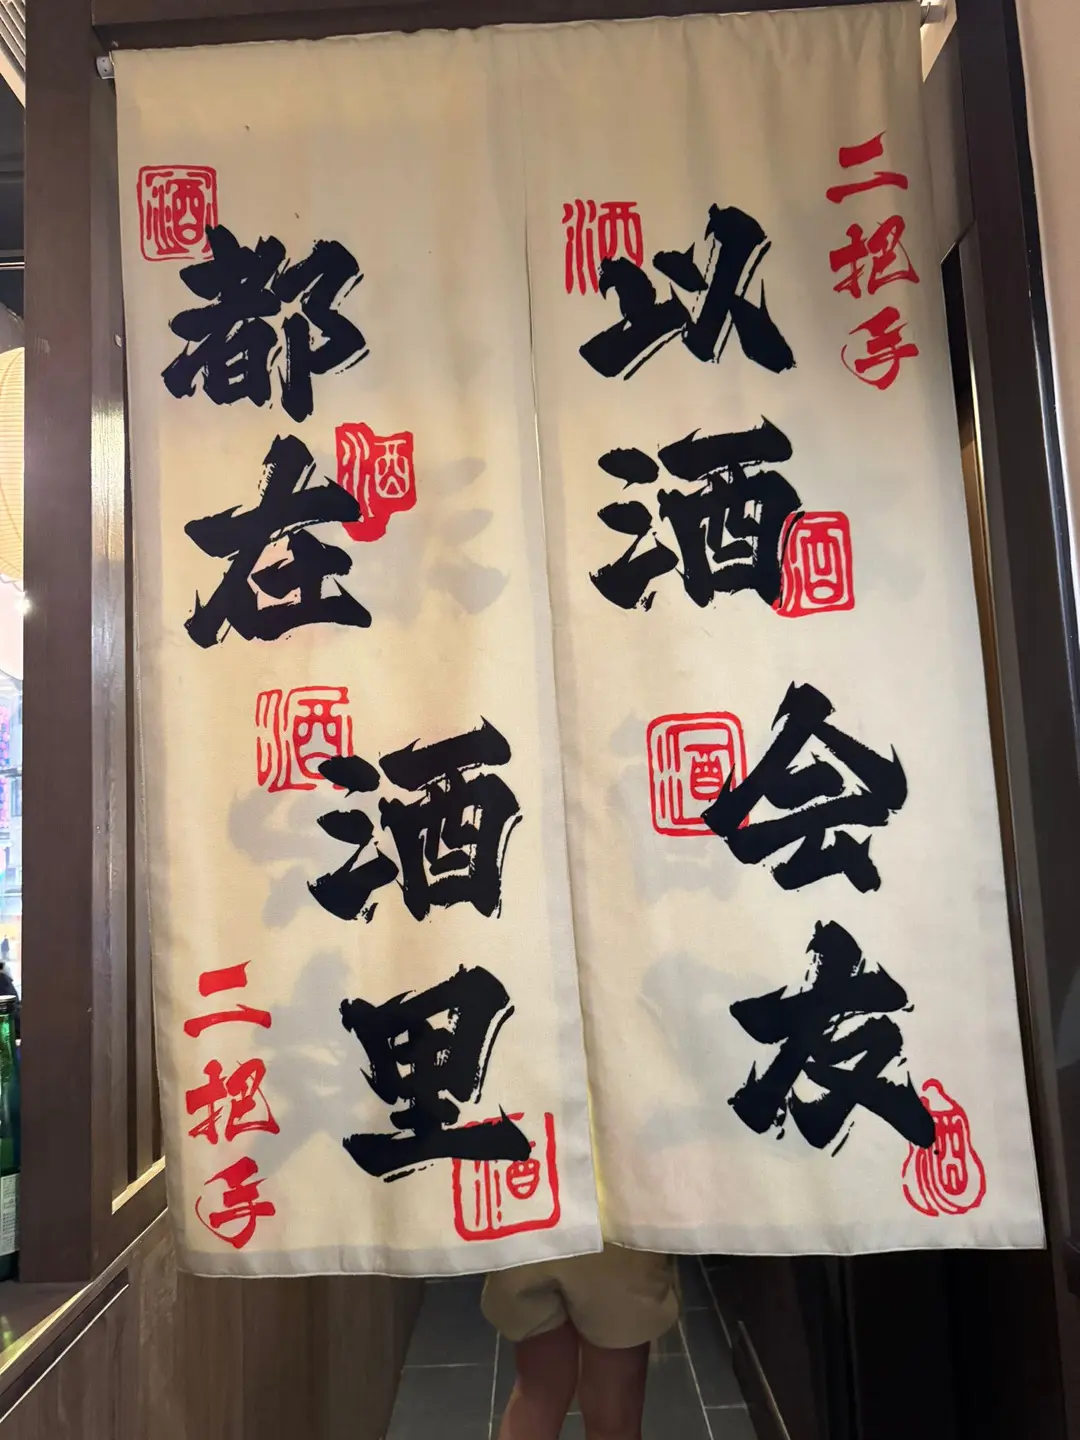 二把手
以酒会友
都在酒里
二把手
酒
酒
酒
酒
酒
酒
酒
酒